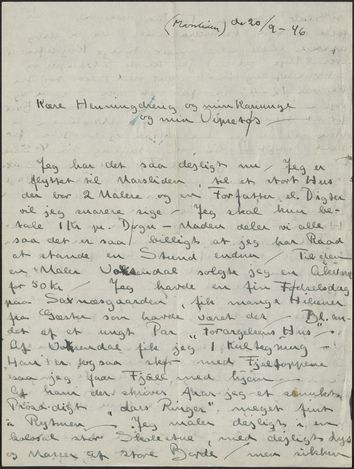 (Marsliden) d. 20/9 - 46
Kære Henningdreng og min Kanunge
og min Vipsetøs -
Jeg har det saa dejligt nu - Jeg er
flyttet til Marsliden, til et stort Hus
der bor 2 Malere og en Forfatter el. Digter
vil jeg snarere sige - Jeg skal kun be-
tale 1 Kr pr. Døgn - Maden deler vi alle
saa det er saa billigt at jeg har Raad
at stande en Stund endnu - Til den
en Maler solgte jeg en
for 50 Kr - Jeg havde en fin Fødselsdag
paa Saxnäsgaarden, fik mange Hilsener
fra Gæster som havde været der - Bl. an-
det af et ungt Par "Forargelsens Hus" -
Af fik jeg 1 Kultegning -
Han er og saa med Fjeldtoppene
saa jeg faar Fjäll med hjem -
Af ham der skriver faar jeg et
Prosa-digt "Aars Ringer" meget fint
i Rytmen - Jeg maler dejligt i en
kolossal stor Skolestue, med dejligt Lys
og Masser af store Borde, men sikken